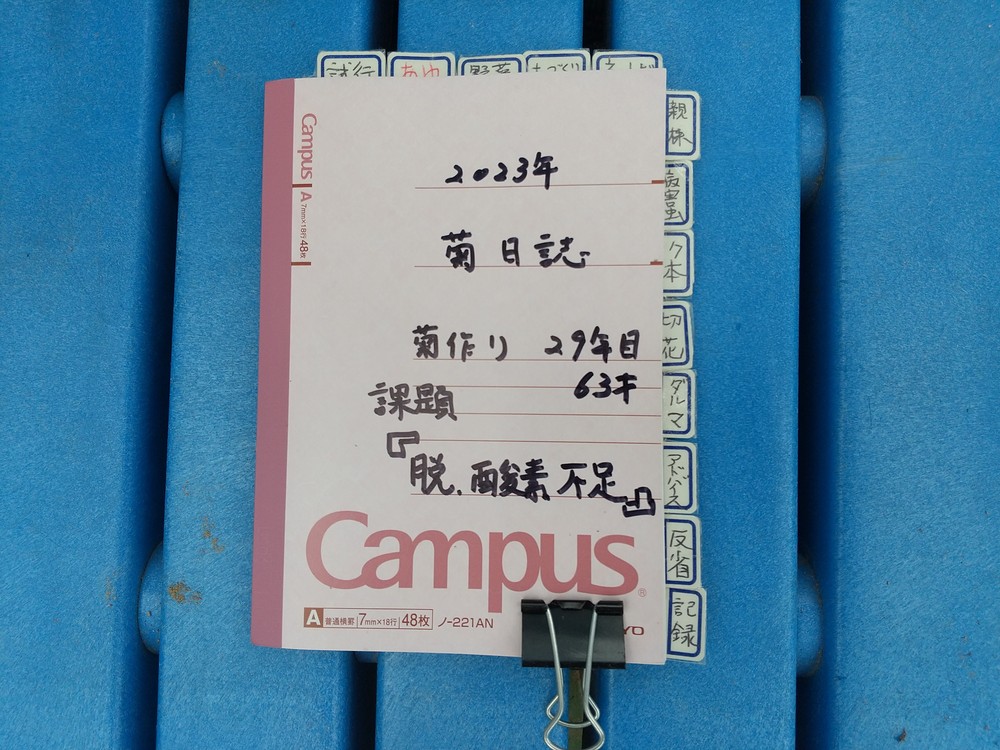 試行
あゆ
野菜
土づくり
2023年
菊日誌
菊作り 29年目
63才
課題
『脱、酸素不足』
Campus
A 普通横罫 7mm×18行 48枚 ノ-221AN
YO
Campus A 7mm×18行 48枚
親株
ク本
切花
ダルマ
アドバイス
反省
記録